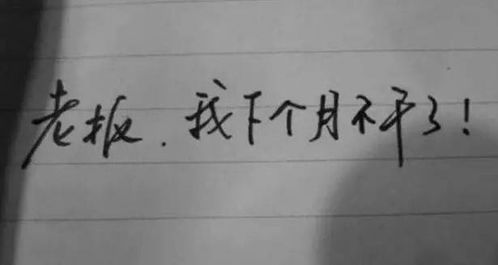 老板.我下个月不干了!